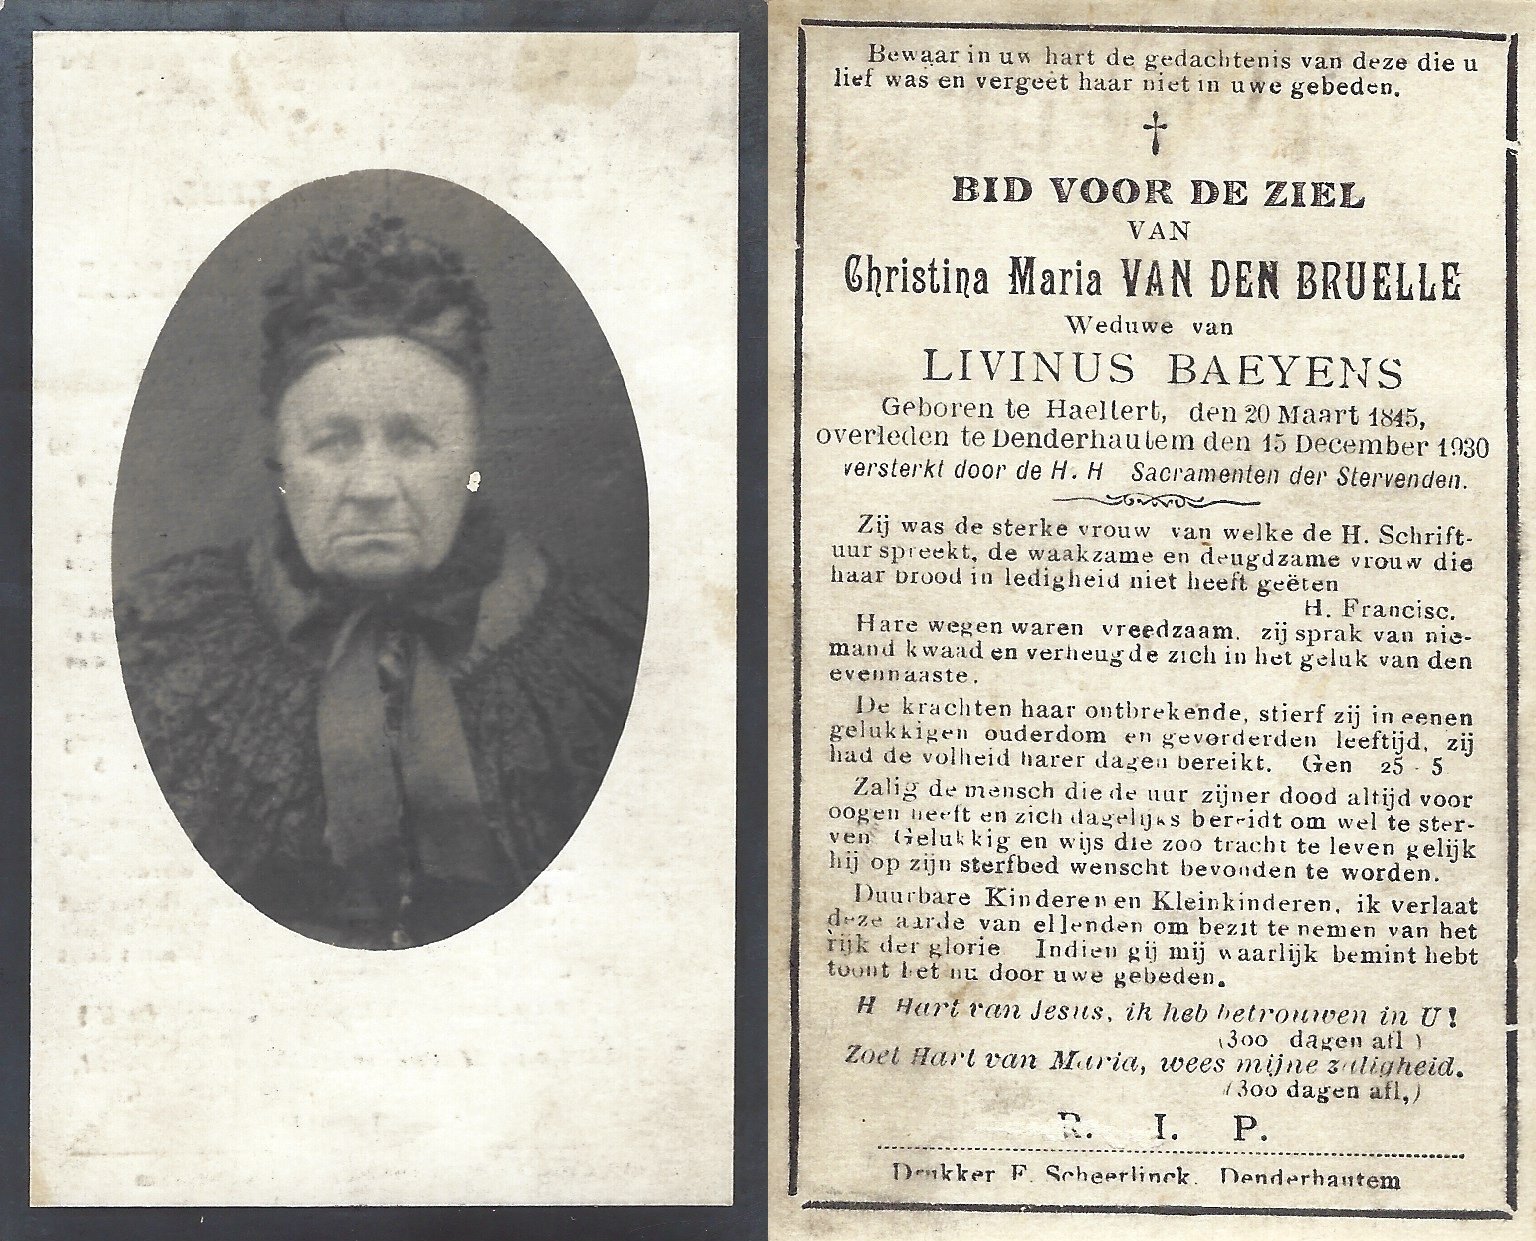 Bewaar in uw hart de gedachtenis van deze die u
lief was en vergeet haar niet in uwe gebeden.
†
BID VOOR DE ZIEL
VAN
Christina Maria VAN DEN BRUELLE
Weduwe van
LIVINUS BAEYENS
Geboren te Haeltert, den 20 Maart 1845,
overleden te Denderhautem den 15 December 1930
versterkt door de H. H Sacramenten der Stervenden.
Zij was de sterke vrouw van welke de H. Schrift-
uur spreekt, de waakzame en deugdzame vrouw die
haar brood in ledigheid niet heeft geëten
H. Francisc.
Hare wegen waren vreedzaam. zij sprak van nie-
mand kwaad en verheugde zich in het geluk van den
evennaaste.
De krachten haar ontbrekende, stierf zij in eenen
gelukkigen ouderdom en gevorderden leeftijd, zij
had de volheid harer dagen bereikt. Gen 25 - 5
Zalig de mensch die de uur zijner dood altijd voor
oogen heeft en zich dagelijks bereidt om wel te ster-
ven Gelukkig en wijs die zoo tracht te leven gelijk
hij op zijn sterfbed wenscht bevonden te worden.
Duurbare Kinderen en Kleinkinderen, ik verlaat
deze aarde van ellenden om bezit te nemen van het
rijk der glorie Indien gij mij waarlijk bemint hebt
toont het nu door uwe gebeden.
H Hart van Jesus, ik heb betrouwen in U!
(300 dagen afl )
Zoet Hart van Maria, wees mijne zaligheid.
(300 dagen afl,)
R. I. P.
Drukker F. Scheerlinck. Denderhautem